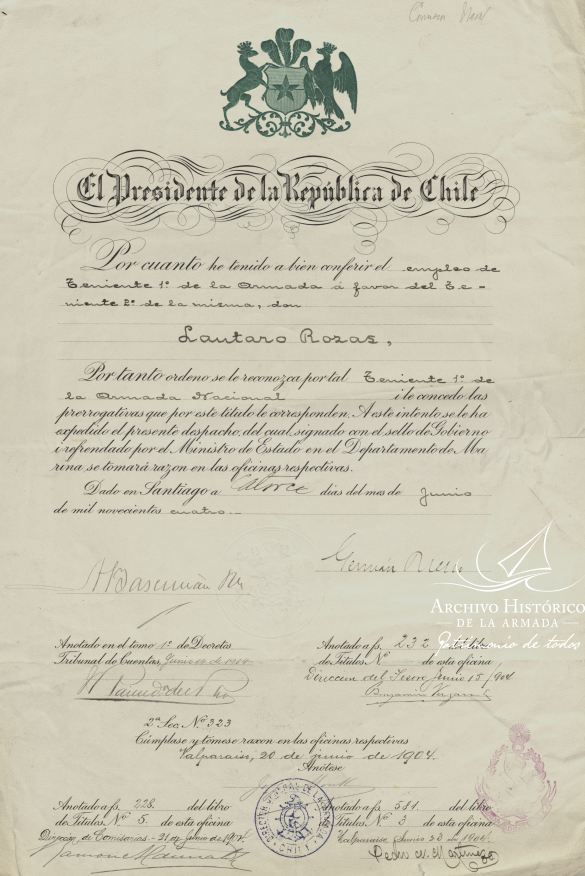 El Presidente de la República de Chile
Por cuanto he tenido a bien conferir el empleo de
Teniente 1º de la Armada á favor del Te-
niente 2º de la misma, don
Lautaro Rozas,
Por tanto ordeno se le reconozca por tal Teniente 1º de
la Armada Nacional i le concedo las
prerrogativas que por este título le corresponden. A este intento se le ha
expedido el presente despacho, del cual, signado con el sello de Gobierno
i refrendado por el Ministro de Estado en el Departamento de Ma
rina, se tomará razon en las oficinas respectivas.
Dado en Santiago a Catorce dias del mes de Junio
de mil novecientos cuatro.-
Germán Riesco
ARCHIVO HISTÓRICO
DE LA ARMADA
Patrimonio de todos
Anotado en el tomo 1º de Decretos
Tribunal de Cuentas,
Anotado a fs. 232 del libro
de Títulos Nº de esta oficina
Direccion del Tesoro Junio 15/904
2ª Sec. Nº 323
Cúmplase y tómese razon en las oficinas respectivas
Valparaiso, 20 de junio de 1904.
Anótese
Anotado a fs. 228. del libro
de Títulos Nº 5. de esta oficina
Anotado a fs. 581. del libro
de Títulos Nº 3 de esta oficina
Valparaiso Junio 23 de 1904.
CHILE